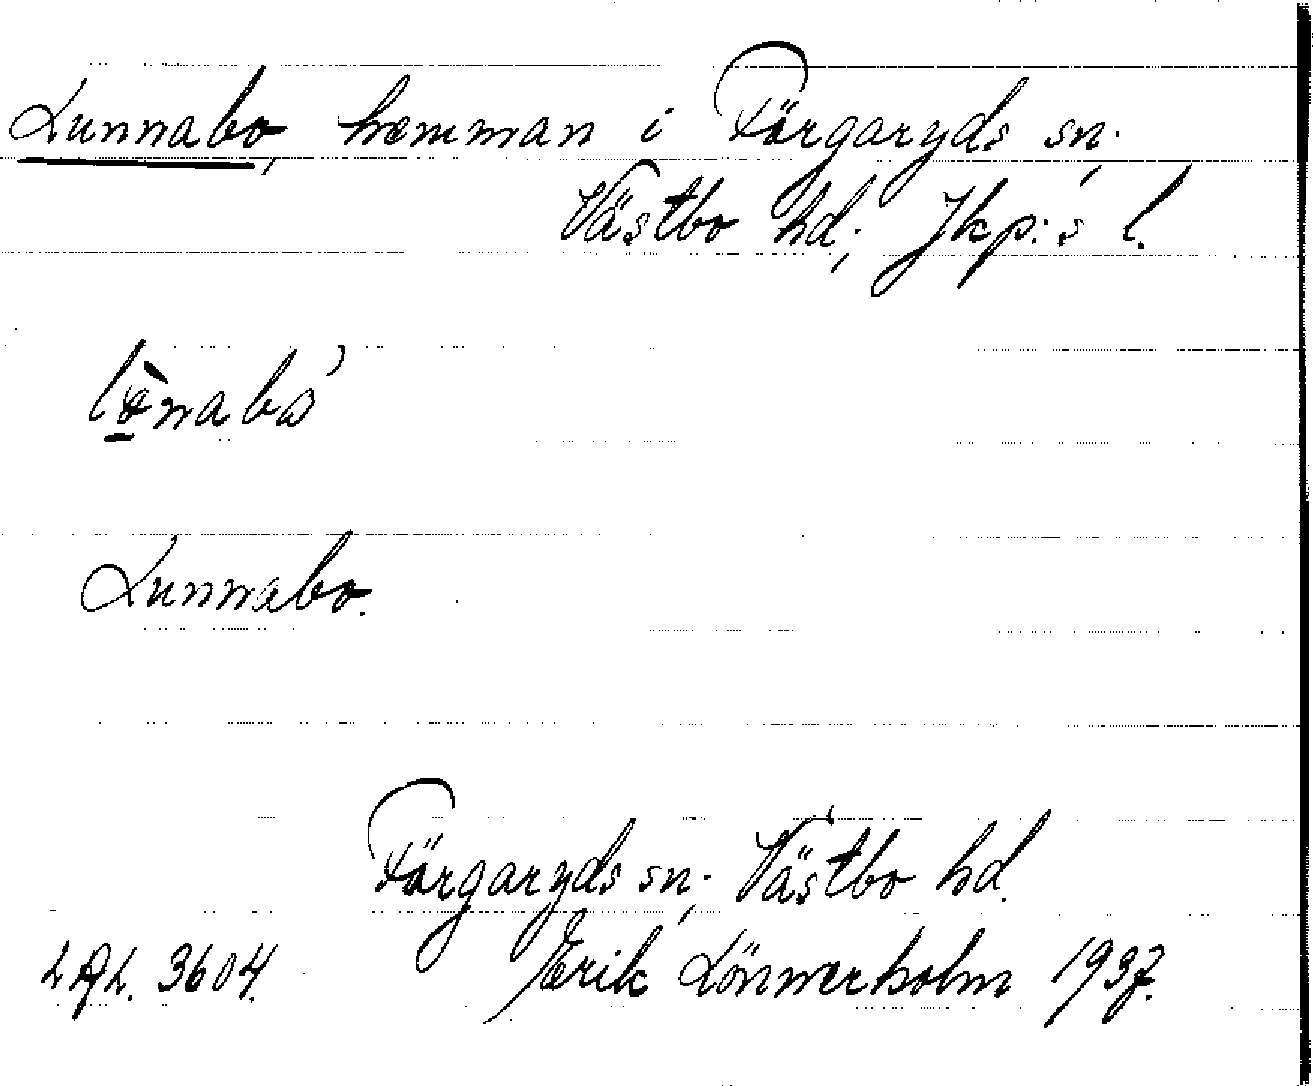 Lunnabo, hemman i Färgaryds sn;
Västbo hd; Jkp:s l.
Lunnabo.
Färgaryds sn; Västbo hd.
3604. Erik Lönnerholm 1937.